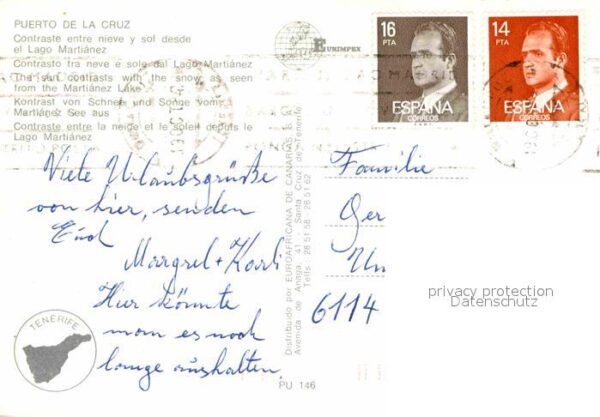 PUERTO DE LA CRUZ
Contraste entre nieve y sol desde
el Lago Martiánez
Contrasto tra neve e sole dal Lago Martiánez
The sun contrasts with the snow as seen
from the Martiánez Lake
Kontrast von Schnee und Sonne vom
Martiánez See aus
Contraste entre la neige et le soleil depuis le
Lago Martiánez
EURIMPEX
16
PTA
ESPAÑA
CORREOS
14
PTA
ESPAÑA
CORREOS
Viele Urlaubsgrüße
von hier, senden
Euch
Margret + Karli
Hier könnte
man es noch
lange aushalten.
TENERIFE
Distribuido por EUROAFRICANA DE CANARIAS S. A.
Avenida de Anaga, 41 - Santa Cruz de Tenerife
Telfs. 28 51 58 - 28 51 62
PU 146
Familie
Ger
Un
6114
privacy protection
Datenschutz